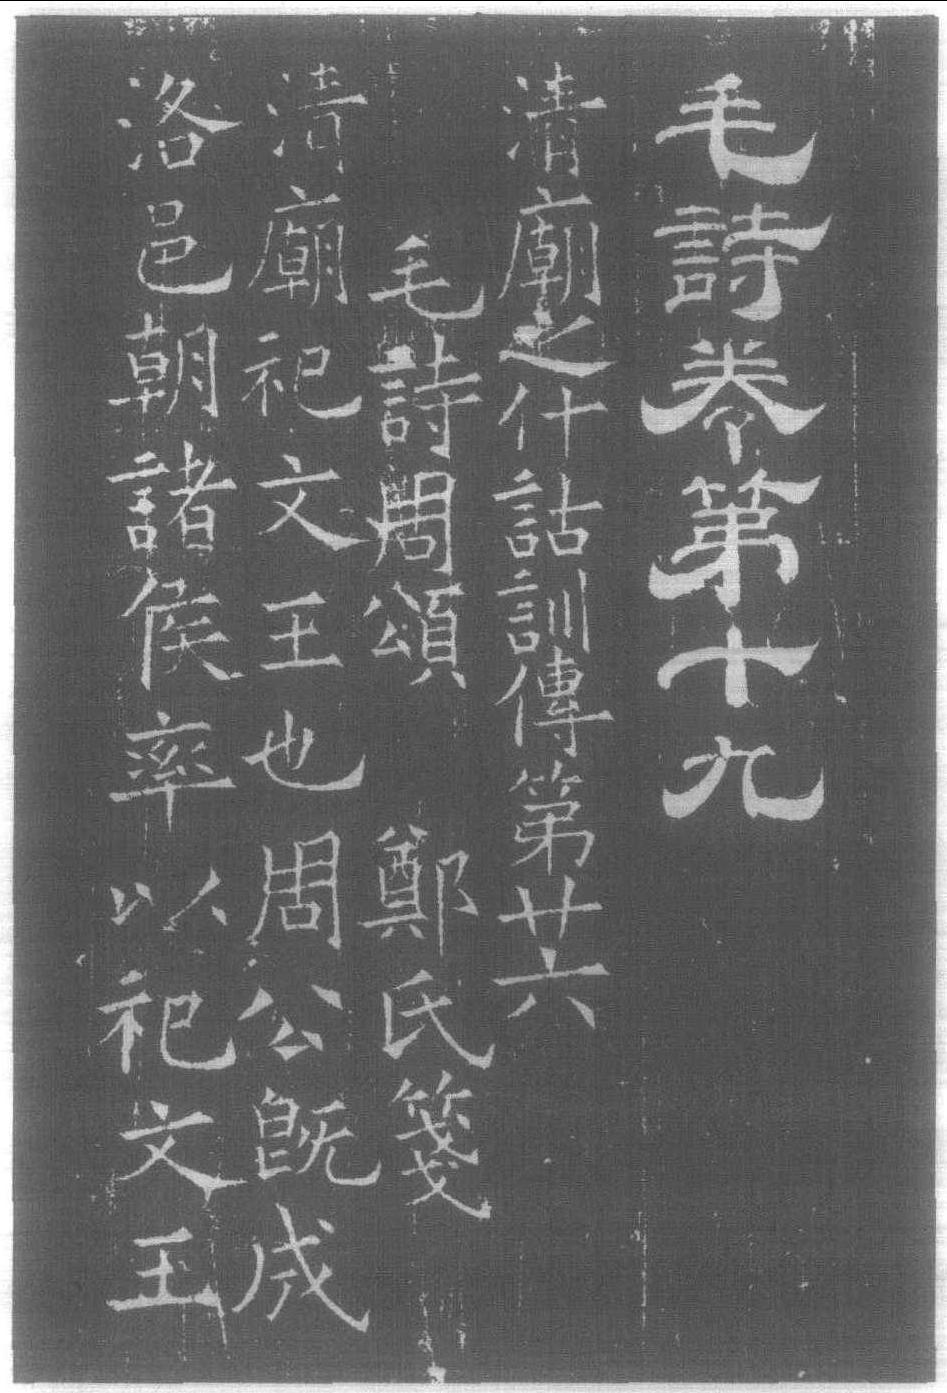 毛詩卷第十九
清廟之什詁訓傳第廿六
毛詩周頌 鄭氏箋
清廟祀文王也周公既成
洛邑朝諸侯率以祀文王